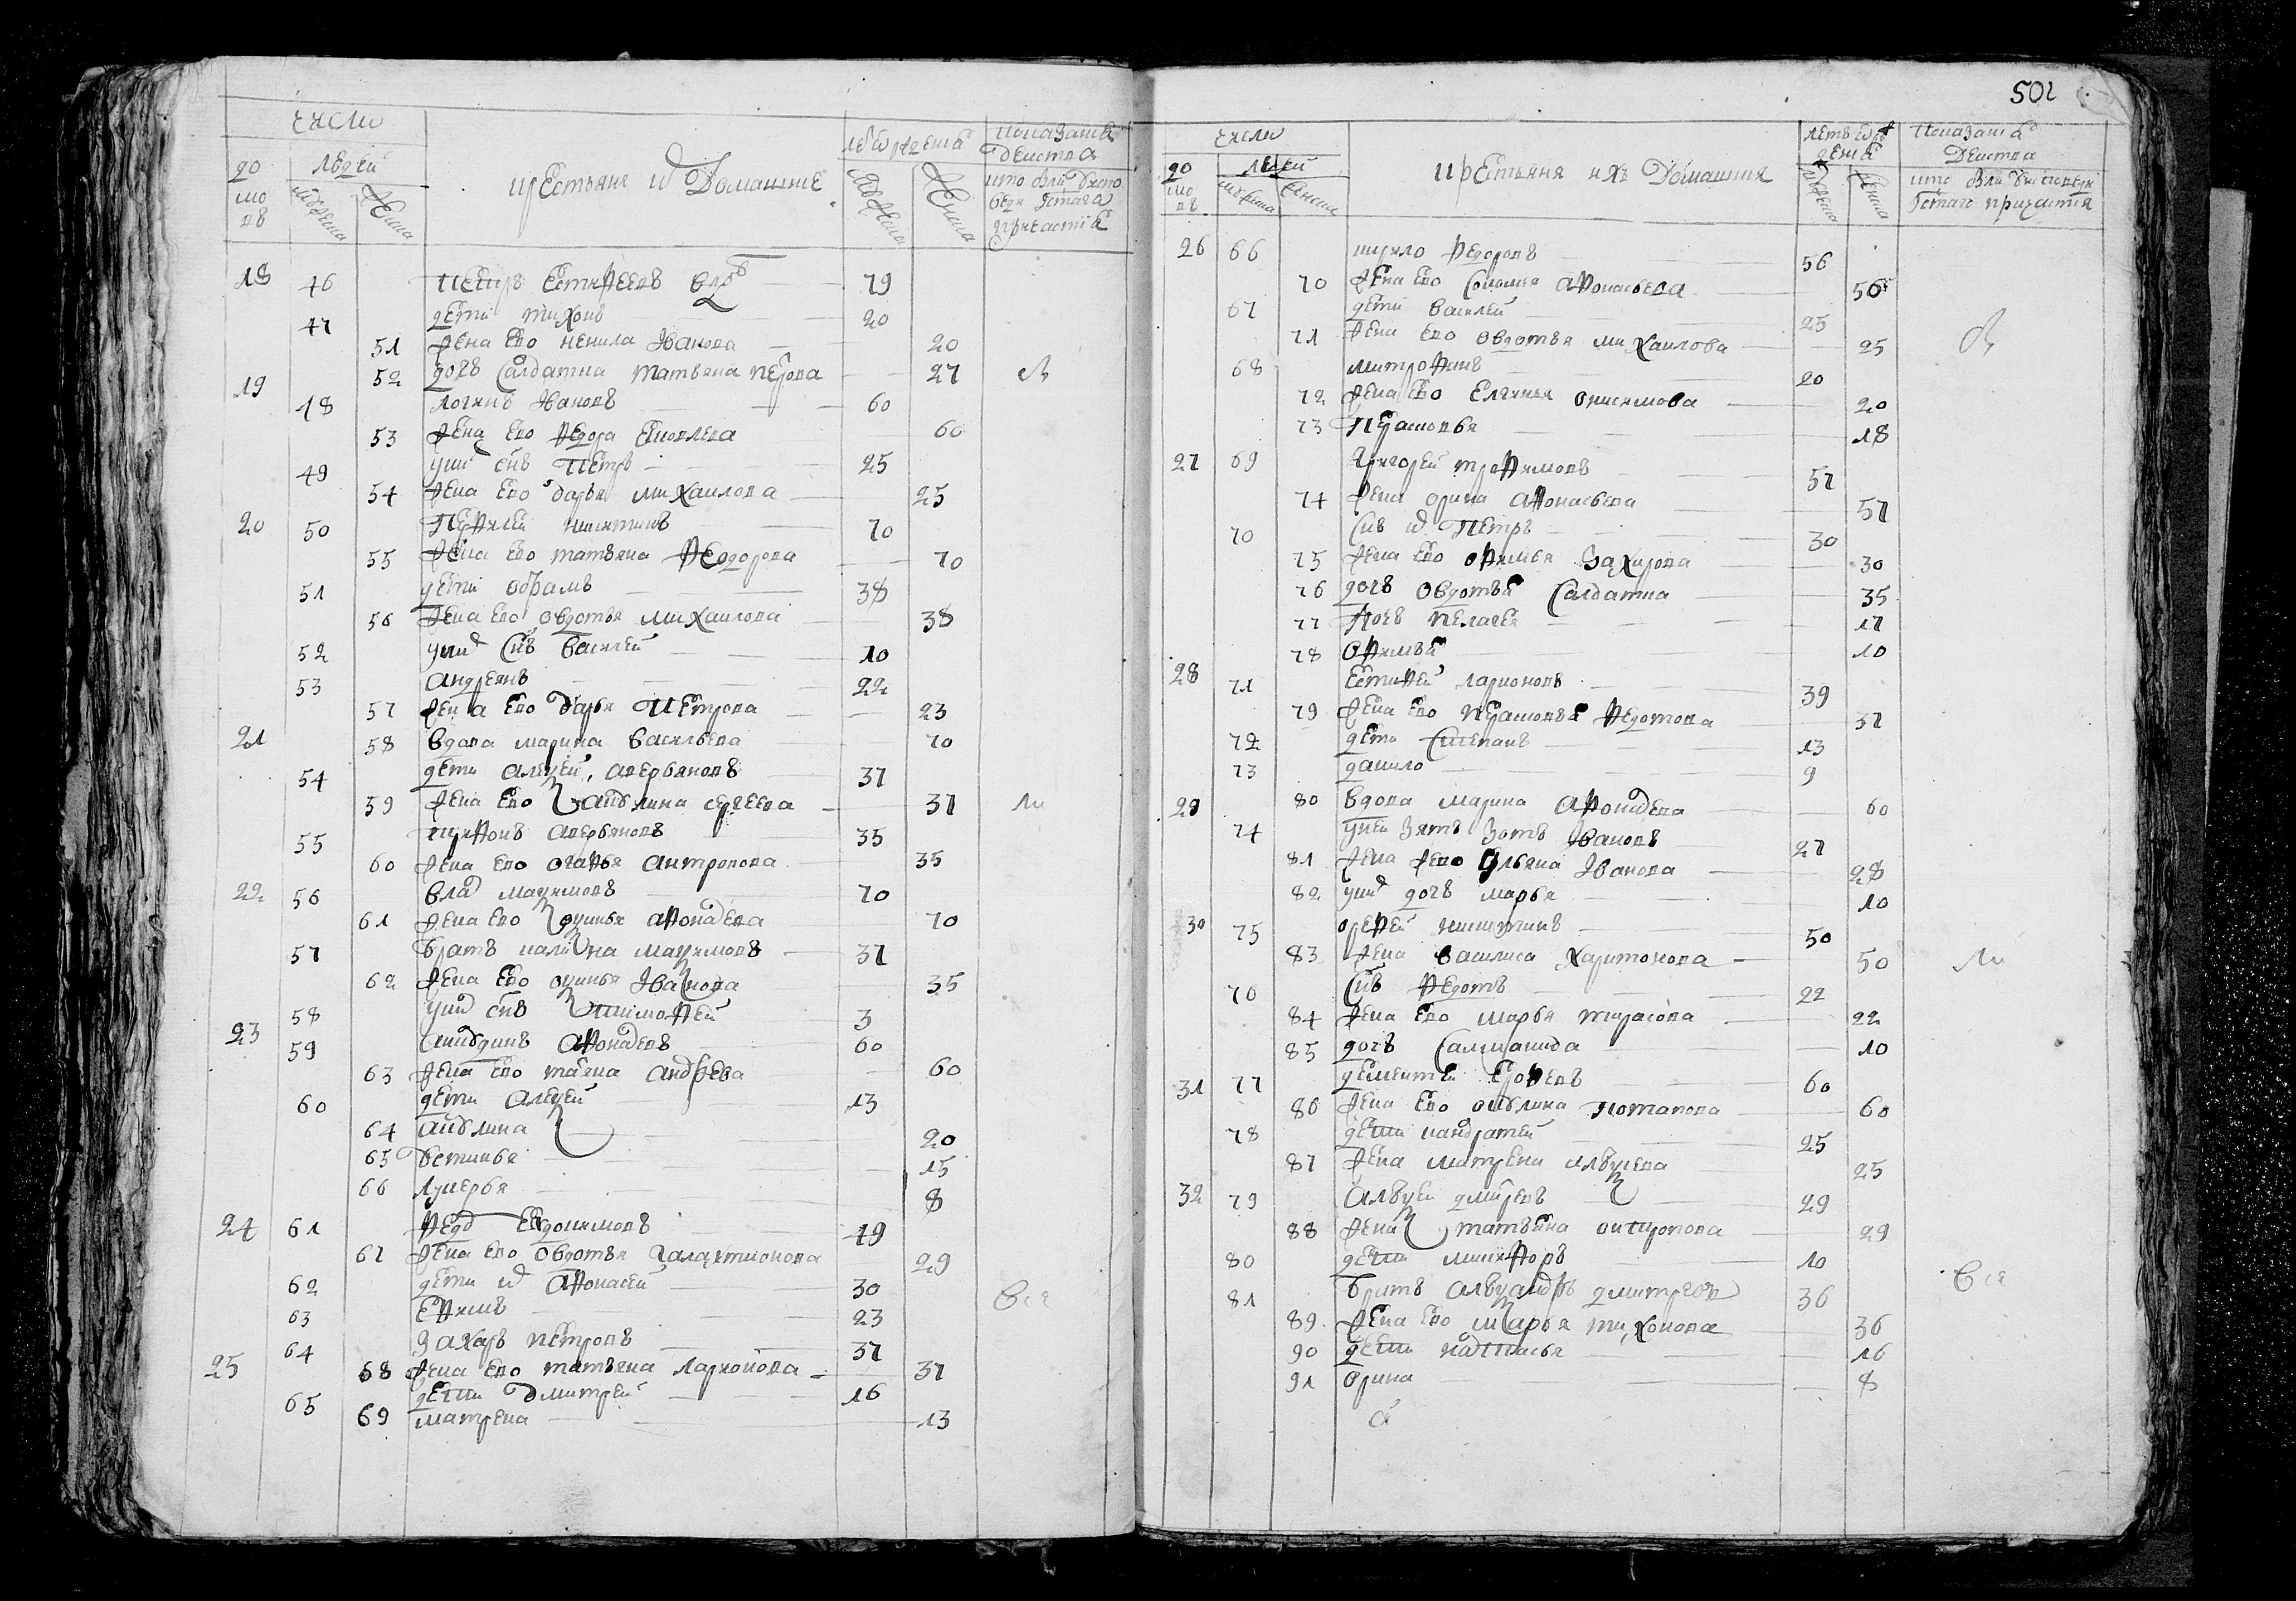 числа
людей
дво
ровъ
мужеска
женска
крестьяне и домашние
мужеска
женска
показание
действа
кто были
18 46 Петръ Естифеевъ вдовъ 79
47 дети Тихонъ 20
51 жена ево Ненила Іванова 20
52 дочь салдатка татьяна петрова 27
19 48 логинъ Ивановъ 60
53 жена ево Федора Емовлева 60
49 у них снъ Петръ 25
54 жена ево дарья михаилова 25
20 50 Перфилей никитинъ 70
55 жена ево татьяна Феодорова 70
51 дети обрамъ 38
56 жена ево овдотья михаилова 38
52 у них снъ василей 10
53 андреянъ 22
57 жена ево дарья Петрова 23
21 58 вдова марина васильева 70
54 дети алексей, аверьяновъ 37
59 жена ево акулина сергеева 37
55 трифонъ аверьяновъ 35
60 жена ево огафья антропова 35
22 56 влас маxимовъ 70
61 жена ево аксинья афонасева 70
57 братъ калина маxимовъ 37
62 жена ево оксинья Іванова 35
58 у них снъ тимофей 3
23 59 афонасевъ 60
63 жена ево таяна андреева 60
60 дети алексей 13
64 акулина 20
65 устинья 15
66 лукерья 8
24 61 Федр Евдокимовъ 49
67 жена ево овдотья галактионова 29
62 дети их афонасей 30
63 Ефимъ 23
64 Захаръ петровъ 37
25 68 жена ево татьяна ларионова 37
65 дети дмитрей 16
69 матрена 13
501
числа
дво
ровъ
людей
мужеска
женска
крестьяня и ихъ домашния
летъ от рож
дения
мужеска
женска
показания
действа
кто были у исповеди
святаго причастия
26 66 кирило Федоровъ 56
70 жена ево соломея афонасьева 56
67 дети василей 25
71 жена ево овдотья михаилова 25
68 митрофанъ 20
72 жена ево онисимова 20
73 Прасковья 18
27 69 григорей трофимовъ 57
74 жена орина афонасьева 57
70 снъ их Петръ 30
75 жена ево офимья Захарова 30
76 дочь овдотья салдатка 35
77 дочь пелагея 17
78 офимья 10
28 71 Естифей ларионовъ 39
79 жена ево прасковья Федотова 37
72 дети степанъ 13
73 данило 9
29 80 вдова марина афонасева 60
74 у ней зять зотъ Івановъ 27
81 жена ево ульяна Іванова 28
82 у них дочь марья 10
30 75 орефей никитинъ 50
83 жена василиса харитонова 50 ли
76 снъ Федотъ 22
84 жена ево марья тарасова 22
85 дочь саламанида 10
31 77 дементей Ерофеевъ 60
86 жена ево окулина потапова 60
78 дети кандратей 25
87 жена матрена 25
32 79 алексей дмитревъ 29
88 жена татьяна антропова 29
80 дети никифоръ 10
81 братъ александръ дмитреевъ 36
89 жена ево марья тихонова 36
90 дети настасья 16
91 орина 8